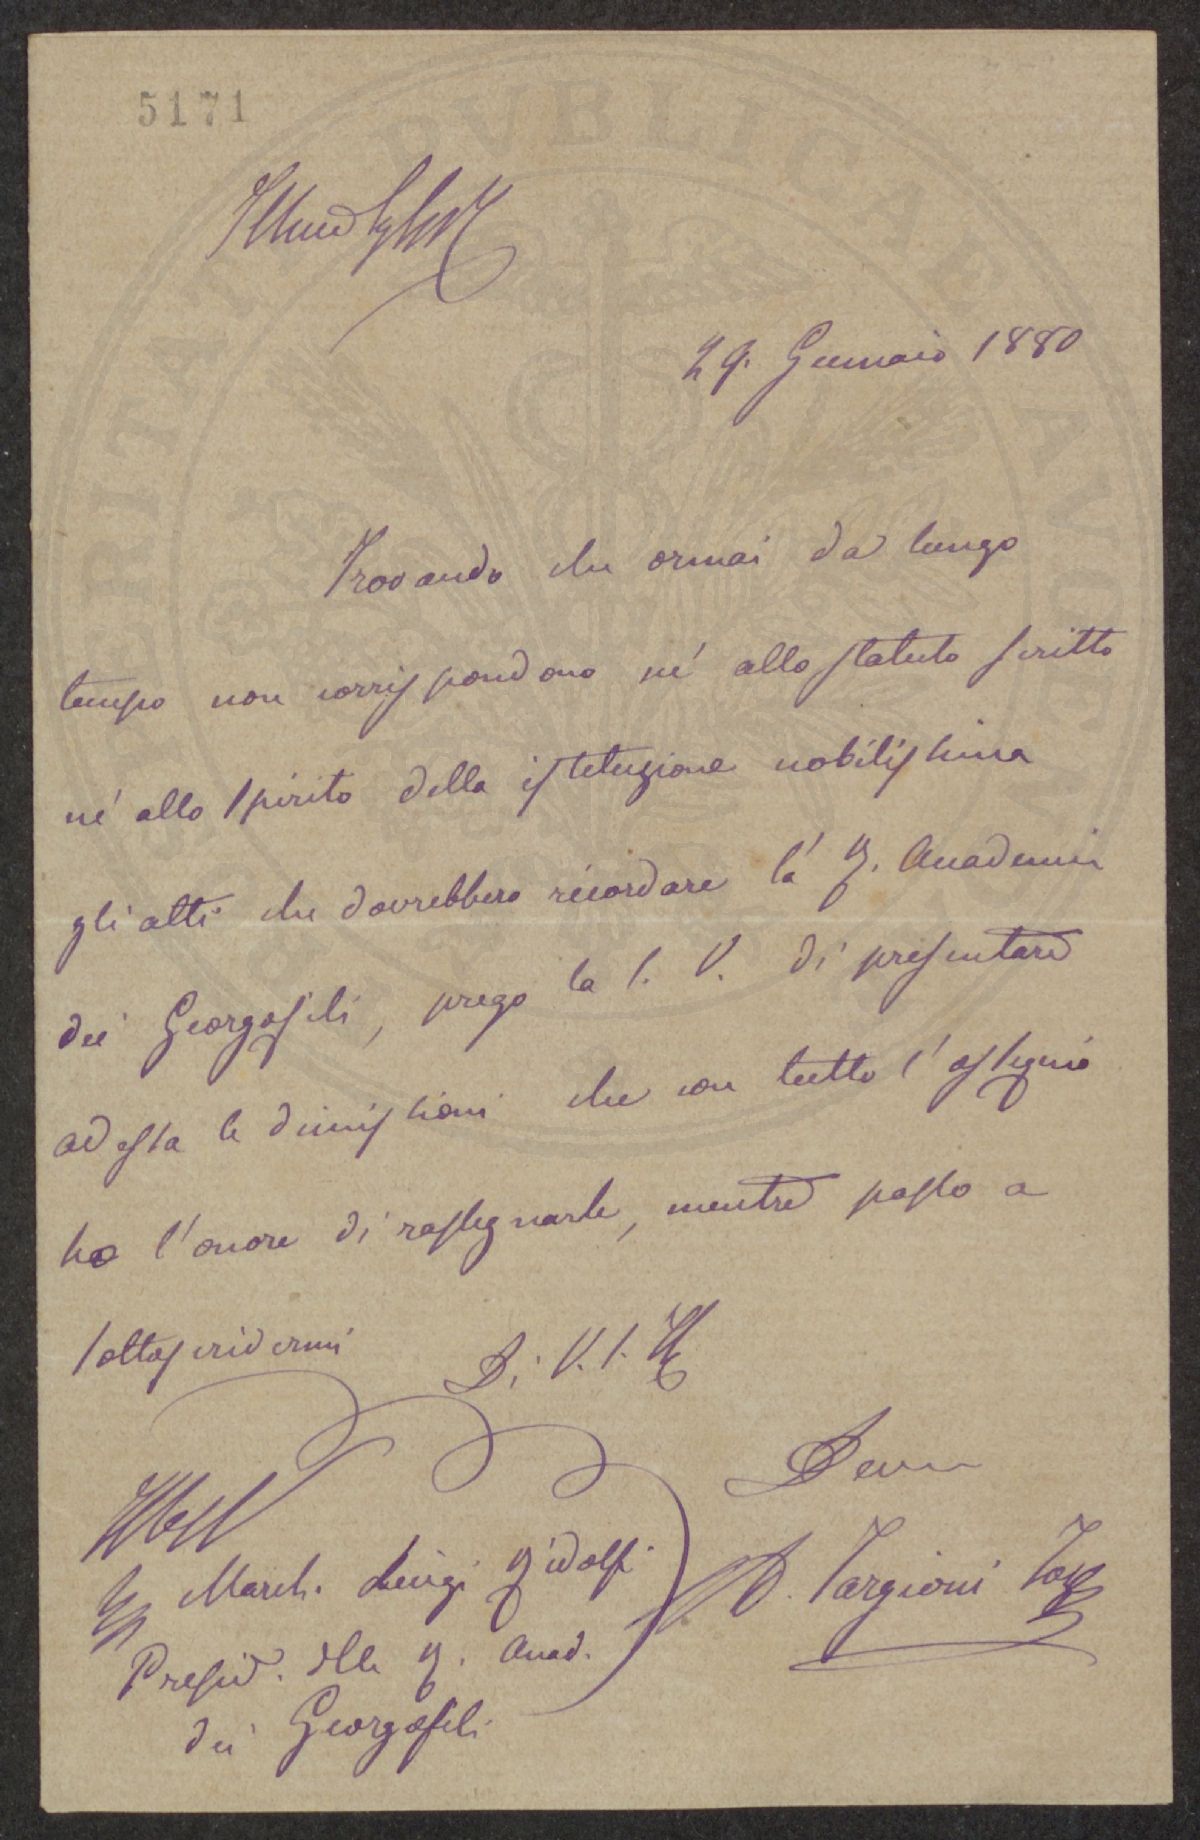 5171
29. Gennaio 1880
Trovando che ormai da lungo
tempo non corrispondono nè allo statuto scritto
nè allo spirito della istituzione nobilissima
gli atti che dovrebbero ricordare la R. Accademia
dei Georgofili, prego la S. V. di presentare
ad essa le dimissioni che con tutto l'ossequio
ho l'onore di rassegnarle, mentre passo a
sottoscrivermi Di V. S. Ill
Devm
A. Targioni Tozz
March. Luigi Ridolfi
Presid. della R. Accad.
dei Georgofili
PVBLICAE